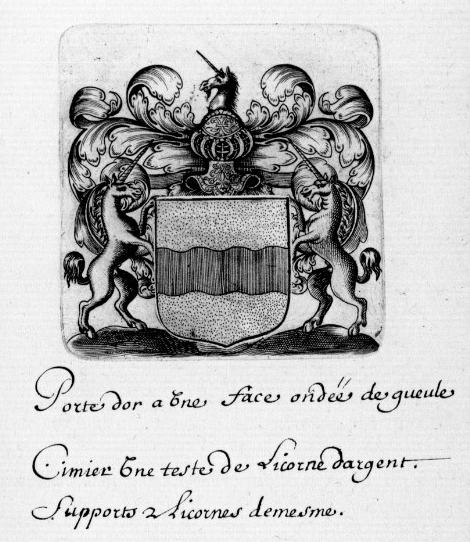 Porte dor a vne face ondëë de gueule
Cimier vne teste de Licorne dargent.
Supports 2 Licornes demesme.